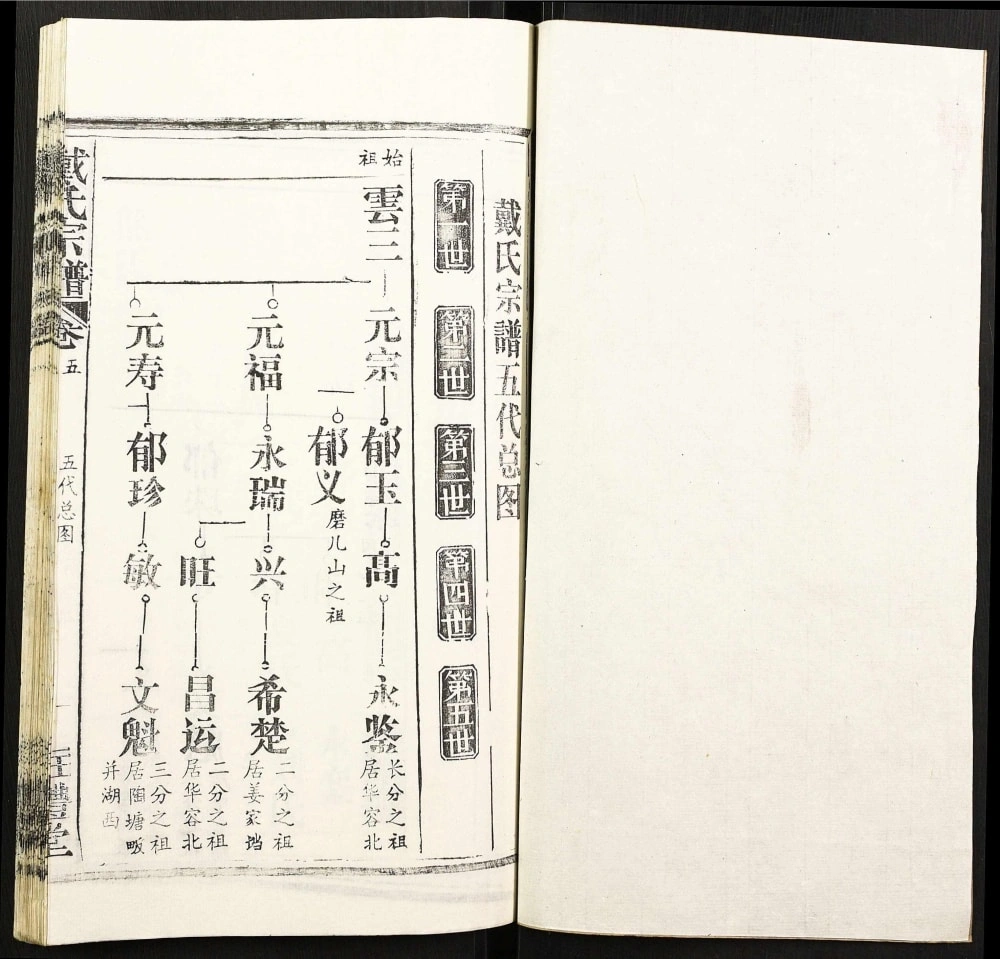 戴氏宗譜五代总图
第一世
第二世
第三世
第四世
第五世
始祖
雲三
元宗
郁玉
高
永鉴
长分之祖
居华容北
郁义
磨儿山之祖
元福
永瑞
兴
希楚
二分之祖
居姜家垱
旺
昌运
二分之祖
居华容北
元寿
郁珍
敏
文魁
三分之祖
居陶塘畈
并湖西
戴氏宗譜
卷五
五代总图